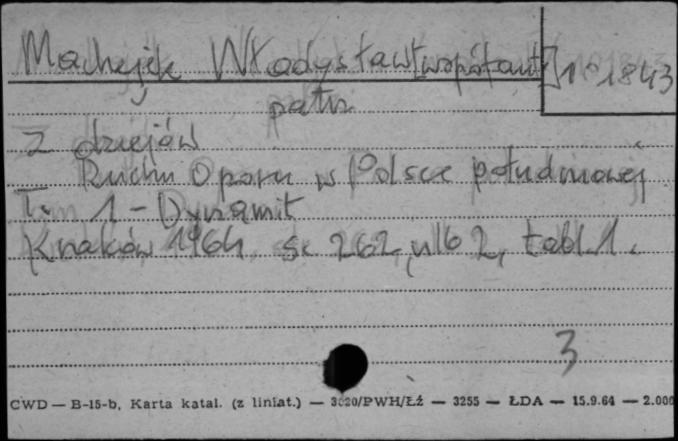 Machejek Władysław [współaut.] 101843
patrz
Z dziejów
Ruchu Oporu w Polsce południowej
T. 1 - Dynamit
Kraków 1964 s. 262, nlb 2, tabl. 1.
3
CWD — B-15-b, Karta katal. (z liniat.) — 3020/PWH/Łź — 3255 — ŁDA — 15.9.64 — 2.000